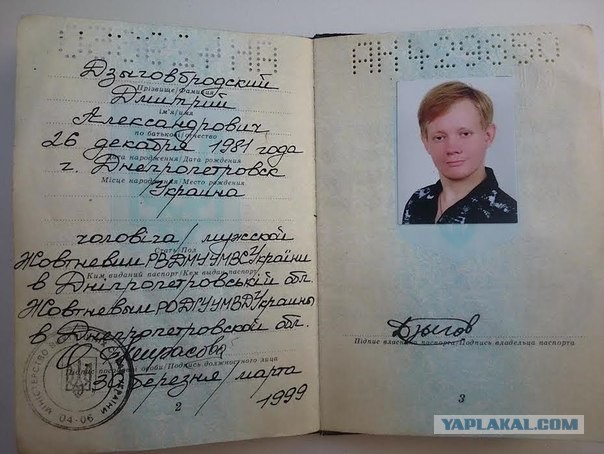 Дзыговбродский
Прізвище/Фамилия
Дмитрий
ім'я/имя
Александрович
по батькові/отчество
26 декабря 1981 года
Дата народження/Дата рождения
г. Днепропетровск
Місце народження/Место рождения
Украина
чоловіча/мужской
Стать/Пол
Жовтневим РВ ДМУ УМВС України
Ким виданий паспорт/Кем выдан паспорт
в Дніпропетровській обл.
Жовтневым РО ДГУ УМВД Украины
в Днепропетровской обл.
Підпис посадової особи/Подпись должностного лица
30 березня/марта
1999
04-06
2
Дзыгов
Підпис власника паспорта/Подпись владельца паспорта
3
YAPLAKAL.COM